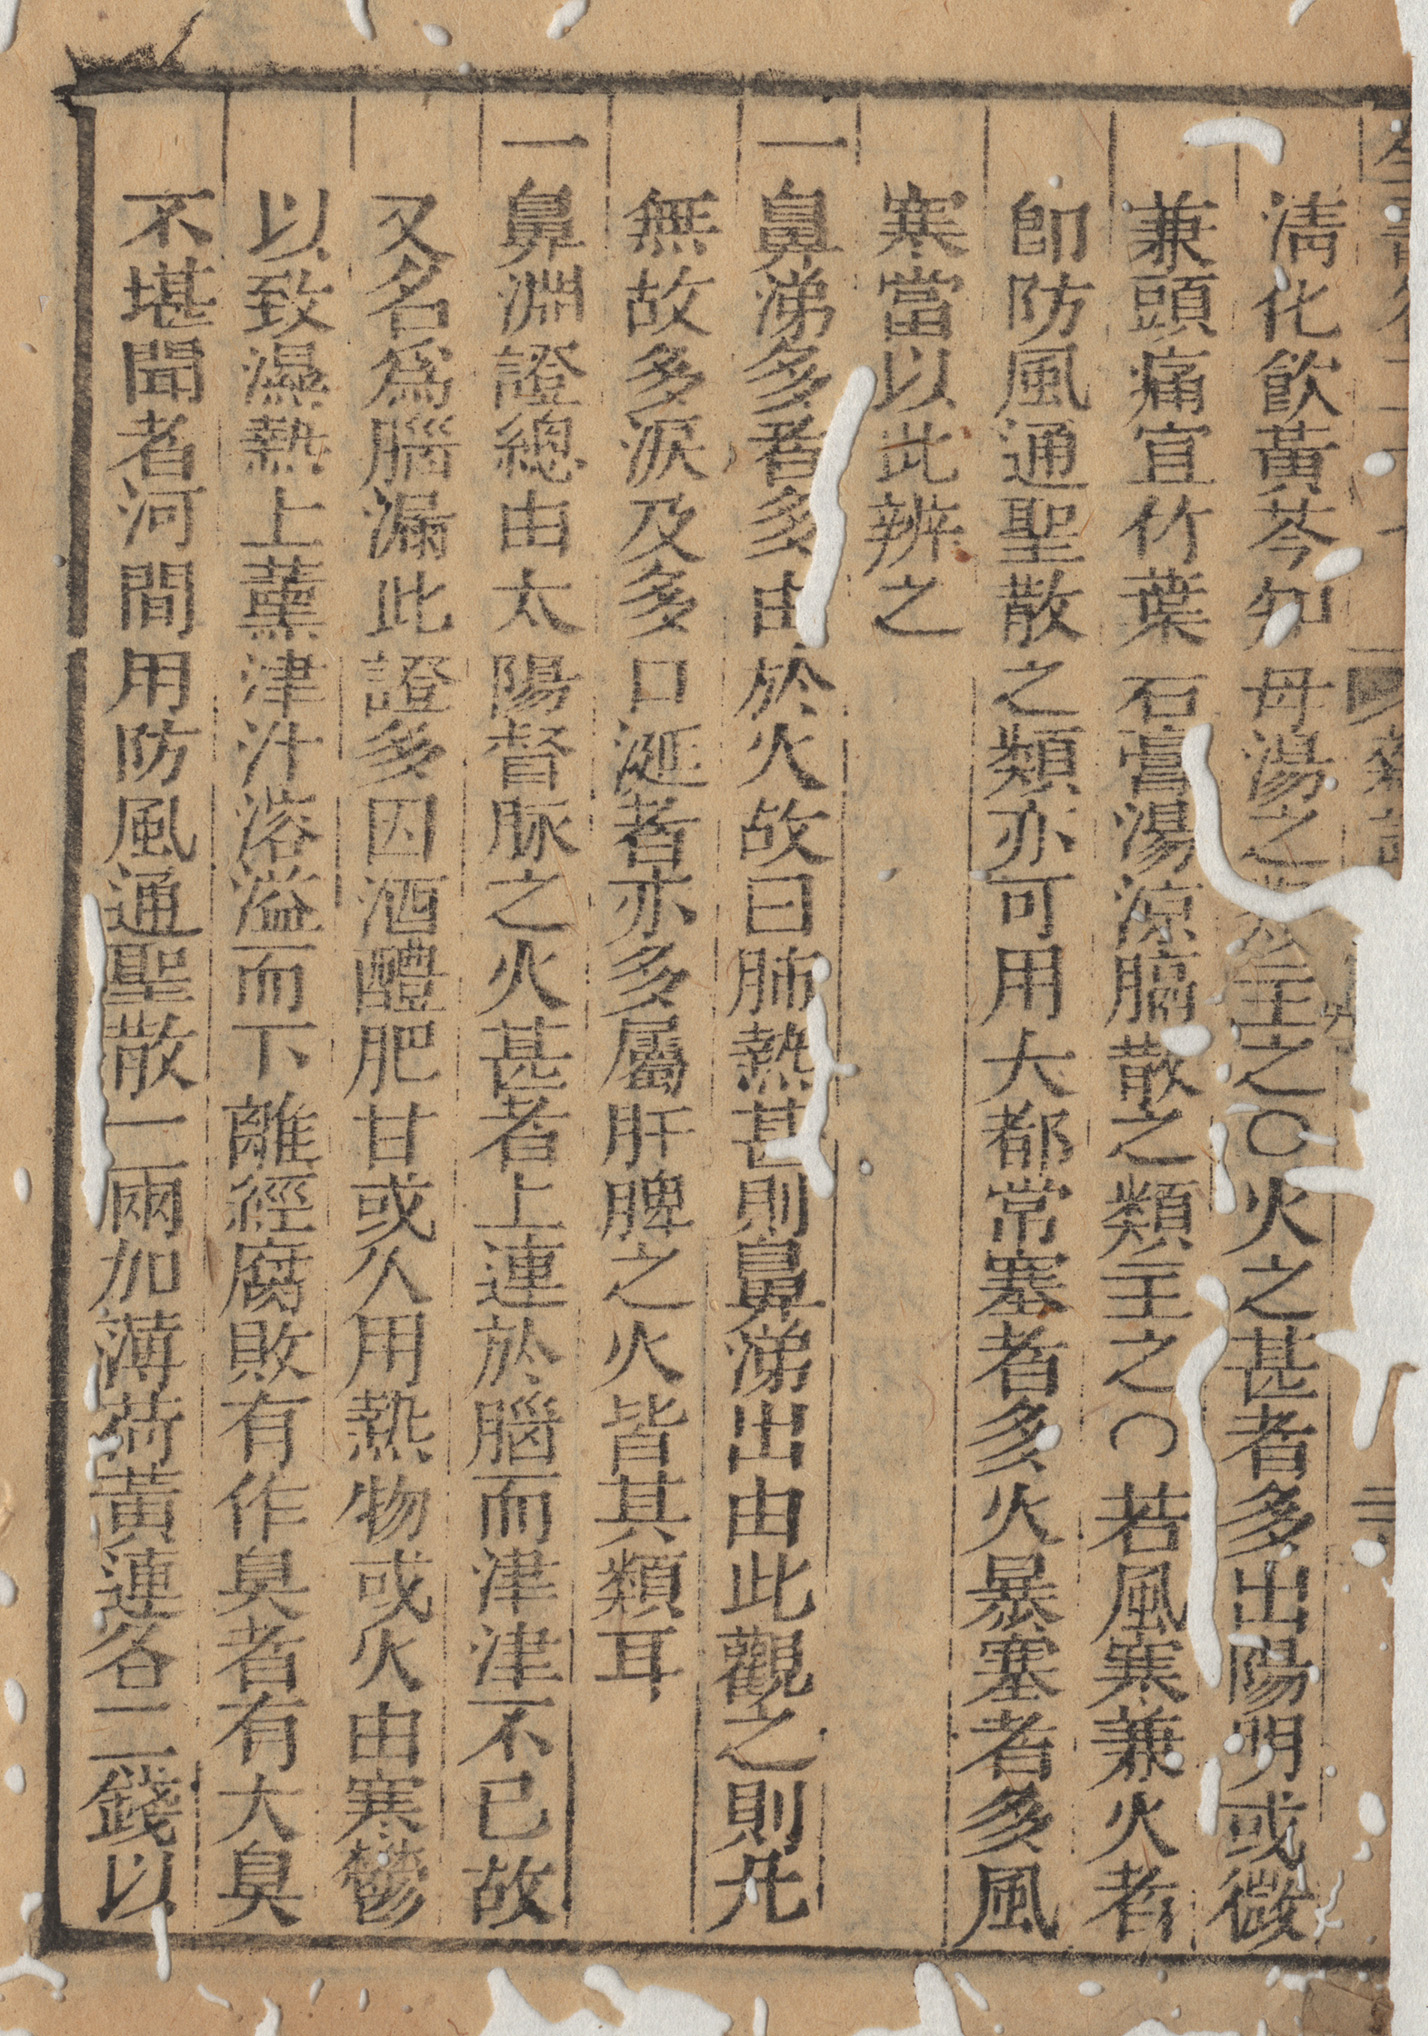 清化飲黃芩知母湯之類主之〇火之甚者多出陽明或微
兼頭痛宜竹葉石膏湯涼膈散之類主之〇若風寒兼火者
卽防風通聖散之類亦可用大都常塞者多火暴塞者多風
寒當以此辨之
一鼻涕多者多由於火故曰肺熱甚則鼻涕出由此觀之則凡
無故多淚及多口涎者亦多屬肝脾之火皆其類耳
一鼻淵證總由太陽督脉之火甚者上連於腦而津津不已故
又名爲腦漏此證多因酒醴肥甘或久用熱物或火由寒鬱
以致濕熱上薰津汁溶溢而下離經腐敗有作臭者有大臭
不堪聞者河間用防風通聖散一兩加薄荷黃連各二錢以